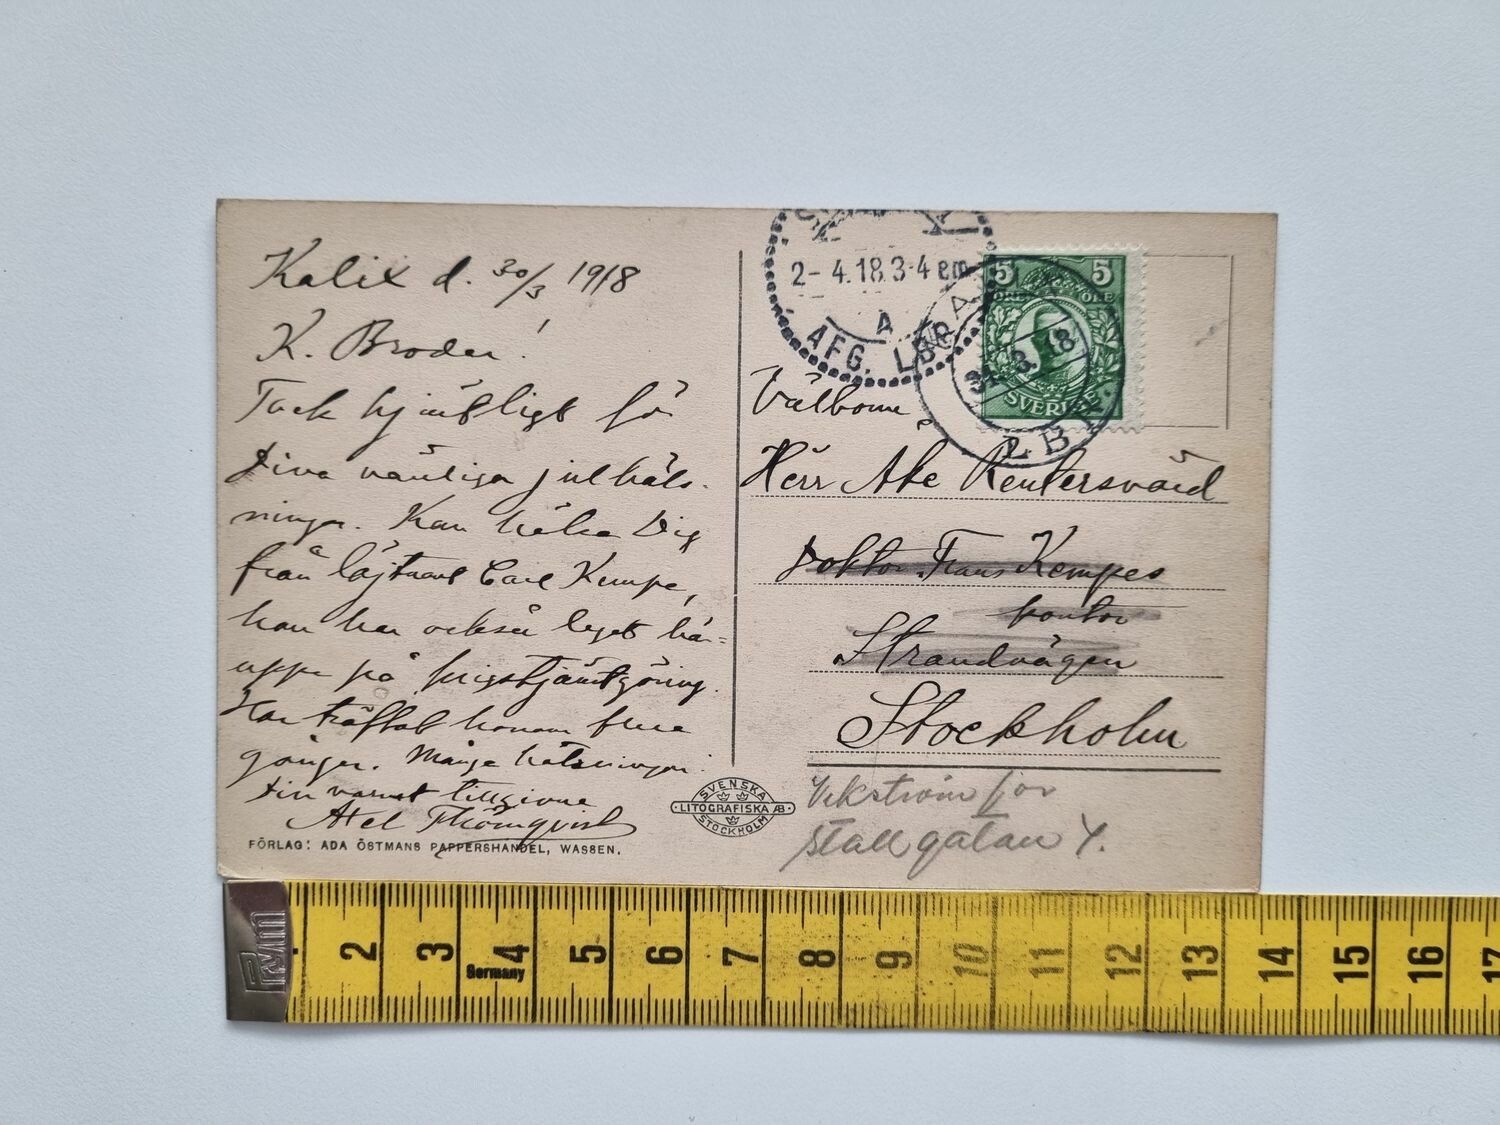 Kalix d. 30/3 1918
K. Broder!
Tack hjärtligt för
dina vänliga julhäls-
ningar. Kan hälsa Dig
från löjtnant Carl Kempe,
han har också legat här-
uppe på krigstjänstgöring.
Har träffat honom flera
gånger. Många hälsningar.
Din varmt tillgivne
Axel Thörnqvist
FÖRLAG: ADA ÖSTMANS PAPPERSHANDEL, WASSEN.
SVENSKA
LITOGRAFISKA AB.
STOCKHOLM
2-4.18.3-4 em
A
AFG. LBR
31.3.18
LBR
5 5
ÖRE ÖRE
SVERIGE
Välborne
Herr Åke Reutersvärd
Doktor Frans Kempes
kontor
Strandvägen
Stockholm
stallgatan 4.
Prym
2 3 4 5 6 7 8 9 10 11 12 13 14 15 16 17
Germany